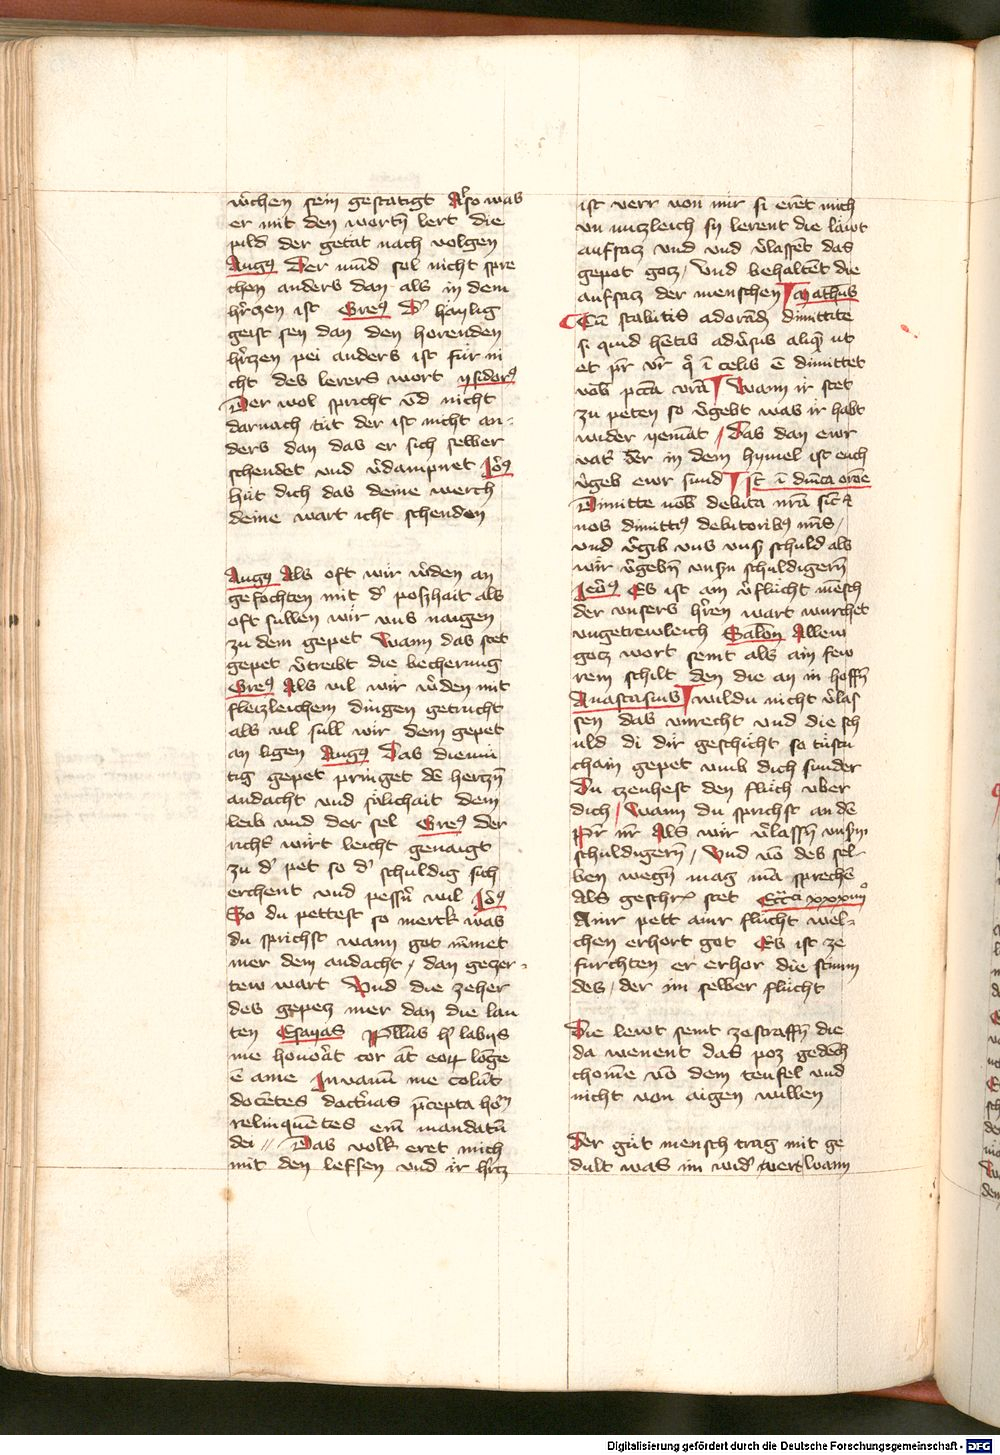 wͦchen sein gestatigt Also was
er mit den wortn̄ lert die
pild der getät nach volgen
Augꝰ Der mūd sol nicht spre
chen anders dan als in dem
hr̄czen ist Greꝰ Dˀ häylig
geist sey dan den horenden
hr̄tzen pei anders ist für ni
cht des lerers wort ysidorꝰ
Der wol spricht vnͦd nicht
darnach tüt der ist nicht an-
ders dan das er sich selber
schendet vnd vͦdampnet Joͦꝰ
hüt dich das deine werch
deine wart icht schenden
Augꝰ Als oft wir wͦden an
gefochten mit dˀ poszhait als
oft sullen wir vns naigen
zu dem gepet Wann das stet
gepet vͦtreibt die bechorung
Greꝰ Als vil wir wͦden mit
fleizleichem dingen getrucht
als vil süll wir dem gepet
an ligen Augꝰ Das diemü
tig gepet pringet dē hertzn̄
andacht vnd sälichait dem
leib vnd der sel Greꝰ der
richt wirt leicht genaigt
zu dˀ pet so dˀ schuldig sich
erchent vnd pessn̄ wil Joͦꝰ
So du pettest so merck was
du sprichst wann got nīmet
mer dem andacht / dan geczer-
tew wart Und die zeher
des gepetz mer dan die lau
ten Esayas Ppl̄us hˀ labijs
me honorˀt cor āt eoꝝ lōge
ē a me In vanū me colūt
docētes doctˀnas p̄cepta hoīm
relinquētes em̄ mandatū
dei // Das volk eret mich
mit den lefsen vnd ir hr̄cz
ist verr von mir si erēt mich
vn nuczleich sy lerent die läwt
aufsacz vnd vnd vͦlassēt das
gepot gocz / Vnd behaltēt die
aufsacz der menschen Mathꝰus
Cū stabitis adorād̄ dimittite
si quid hētis adūsus aliqͣ ut
et pr̄ vr̄ qͥ ī celis ē dimittet
vob̄ pctā vrā Wann ir stet
zu peten so vͦgebt was ir habt
wider yemāt / Das dan ewr
vatˀ der in dem hymel ist euch
vͦgeb ewr sund Ist ī dnīca oroē
Dimitte nob̄ debita nrā sic̄ ⁊
nos dimittꝰ debitoribꝰ nrīs /
vnd vͦgib vns vnsˀ schuld als
wir vͦgebn̄ vnsn̄ schuldigern̄
Jeroͦꝰ Es ist am vͦflucht mēsch
der vnsers hr̄ren wart wurchet
vngetrewleich Salōn Allew
gocz wort seint als ain few
rein schilt den die an in hoffn̄
Anastasius wildu nicht vͦlas
sen das vnrecht vnd die sch
uld di dir geschicht so tüstu
chain gepet vmb dich sunder
Du tzeuhest den flüch vber
dich / Wann du sprichst an dē
Pr̄ nr̄ Als wir vͦlassn̄ vnsˀn
schuldigern̄ / Und vō des sel-
ben wegn̄ mag mā sprechn̄
Als geschrˀ stet Ecc̄ca xxxiiijͦ
Ainr pett ainr flucht wel-
chen erhort got Es ist ze
furchten er erhor die stimm
des / der im selber flücht
Die lewt seint zestraffn̄ die
da wenent das poz gedēch
chome vō dem teufel vnd
nicht von aigen willen
Der güt mensch trag mit ge
dult was im widˀ vert Wann